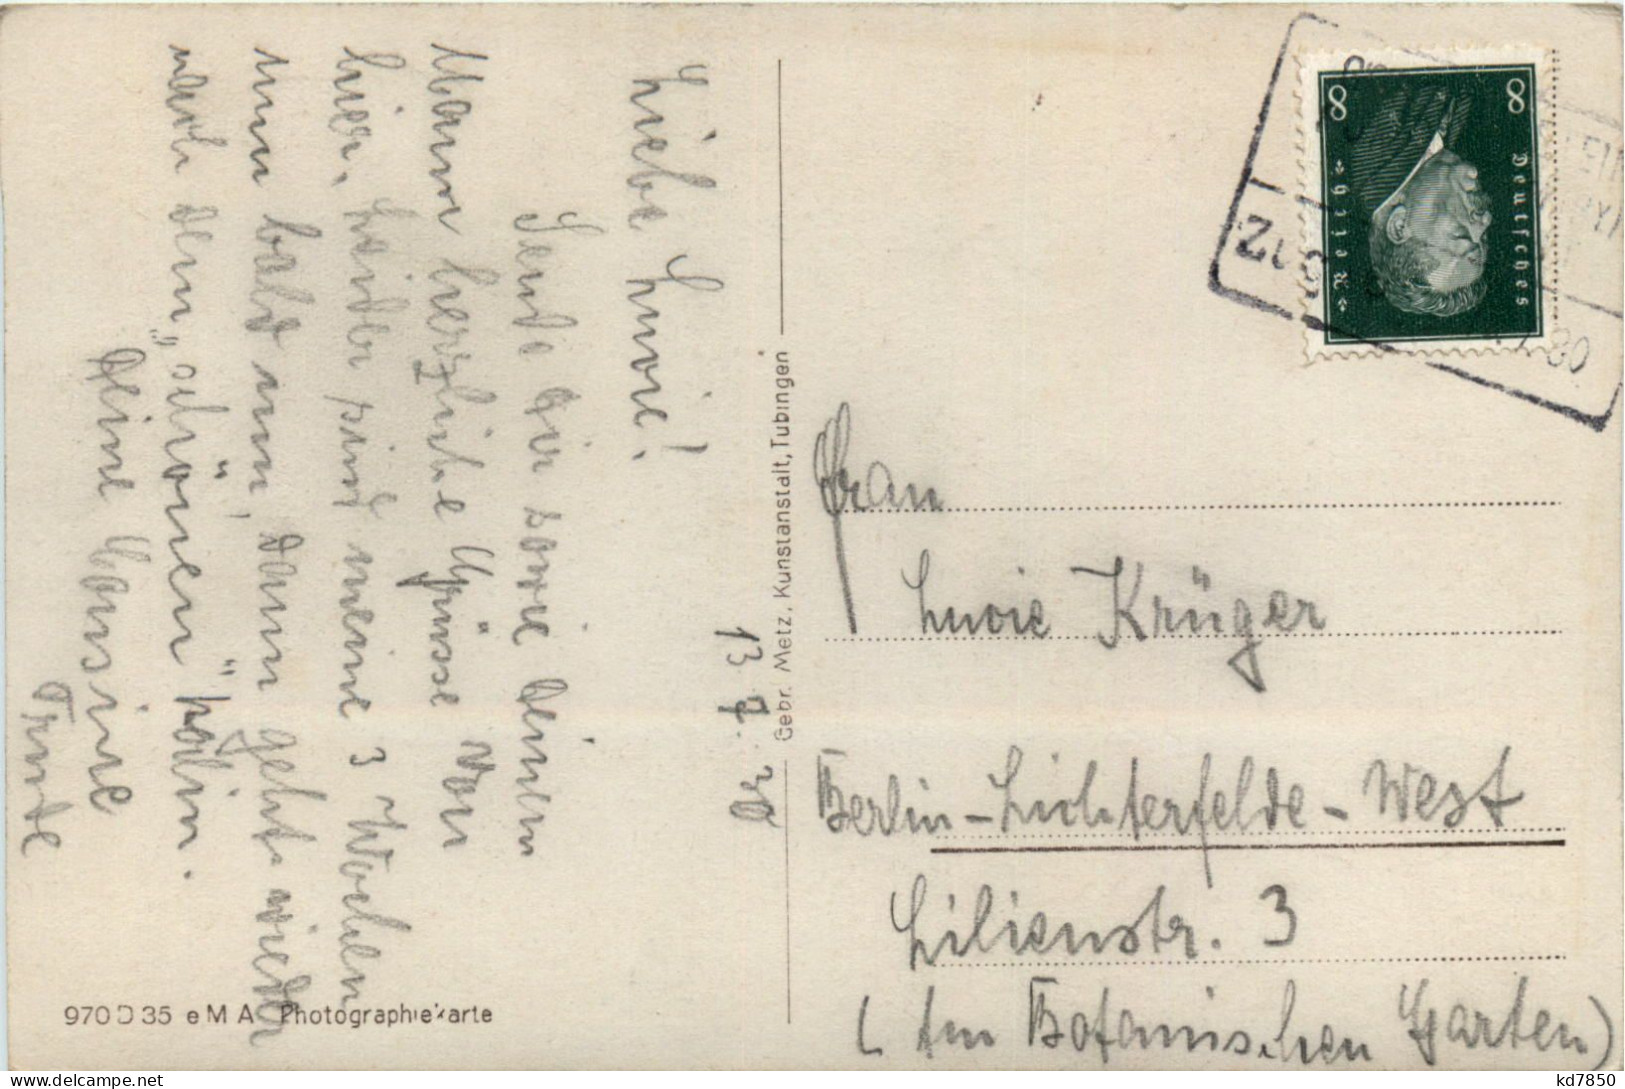 13. 7. 30
Liebe Luzie!
Sende Dir sowie Deinen
Mann herzliche Grüsse von
hier. Leider sind meine 3 Wochen
nun bald um, dann geht's wieder
nach dem „schönen" Köln.
Deine Cousine
Trude
Gebr. Metz, Kunstanstalt, Tübingen
970 D 35 e M A Photographiekarte
8 8
Deutsches
Reich
ZUG
30
Frau
Luzie Krüger
Berlin-Lichterfelde-West
Lilienstr. 3
(Am Botanischen Garten)
kd7850